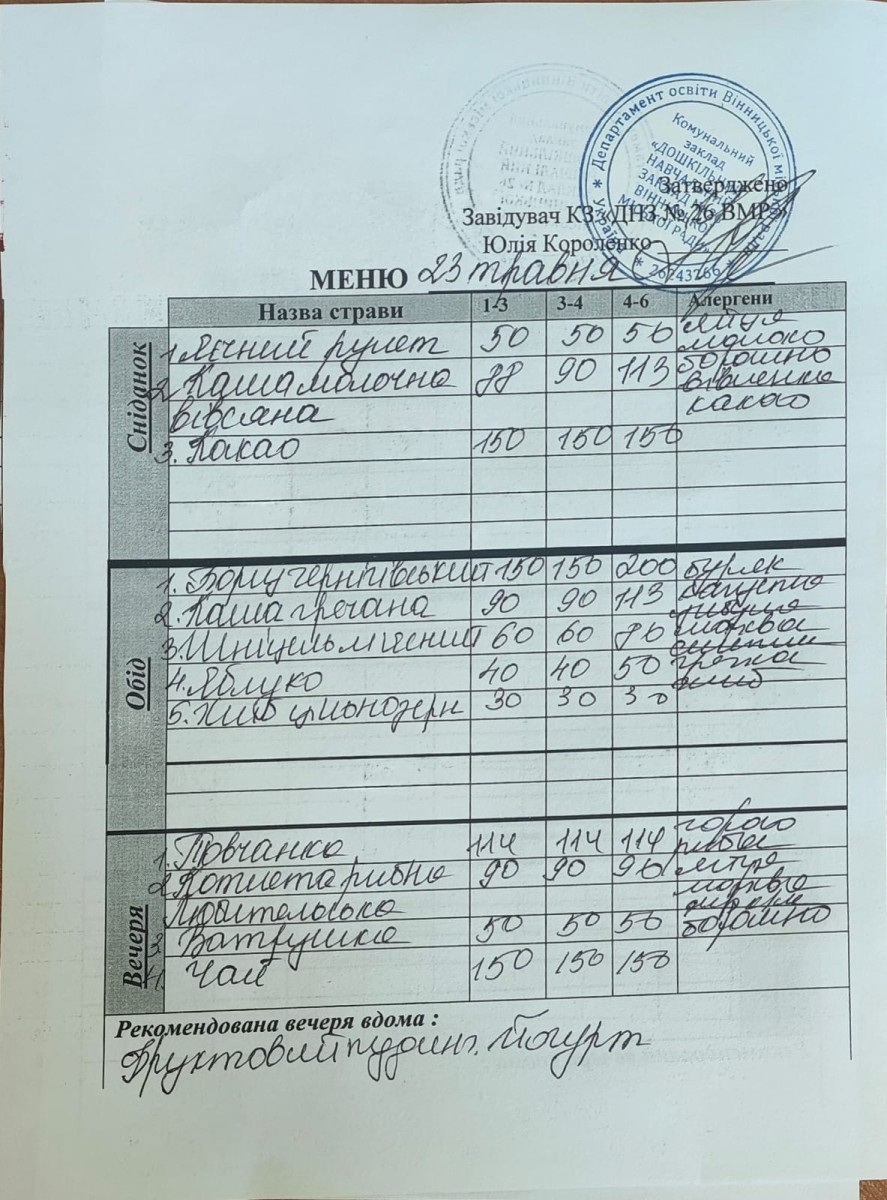 Департамент освіти Вінницької міської ради * Україна *
Комунальний
заклад
«ДОШКІЛЬНИЙ
НАВЧАЛЬНИЙ
ЗАКЛАД № 26
ВІННИЦЬКОЇ
МІСЬКОЇ РАДИ»
* 26243266 *
Затверджено
Завідувач КЗ «ДНЗ № 26 ВМР»
Юлія Короленко
МЕНЮ 23 травня
Назва страви 1-3 3-4 4-6 Алергени
Сніданок
1. Яєчний рулет 50 50 50 яйця
молоко
2. Каша молочна 88 90 113 борошно
вівсянка
вівсяна какао
3. Какао 150 150 150
Обід
1. Борщ чернігівський 150 150 200 буряк
2. Каша гречана 90 90 113 капуста
цибуля
3. Шніцель мʼясний 60 60 80 морква
сметана
4. Яблуко 40 40 50 гречка
хліб
5. Хліб цільнозерн 30 30 30
Вечеря
горох
1. Товчанка 114 114 114 риба
2. Котлета рибна 90 90 90 яйця
морква
Любительська
3. Ватрушка 50 50 50 борошно
4. Чай 150 150 150
Рекомендована вечеря вдома :
Фруктовий пудинг. Йогурт